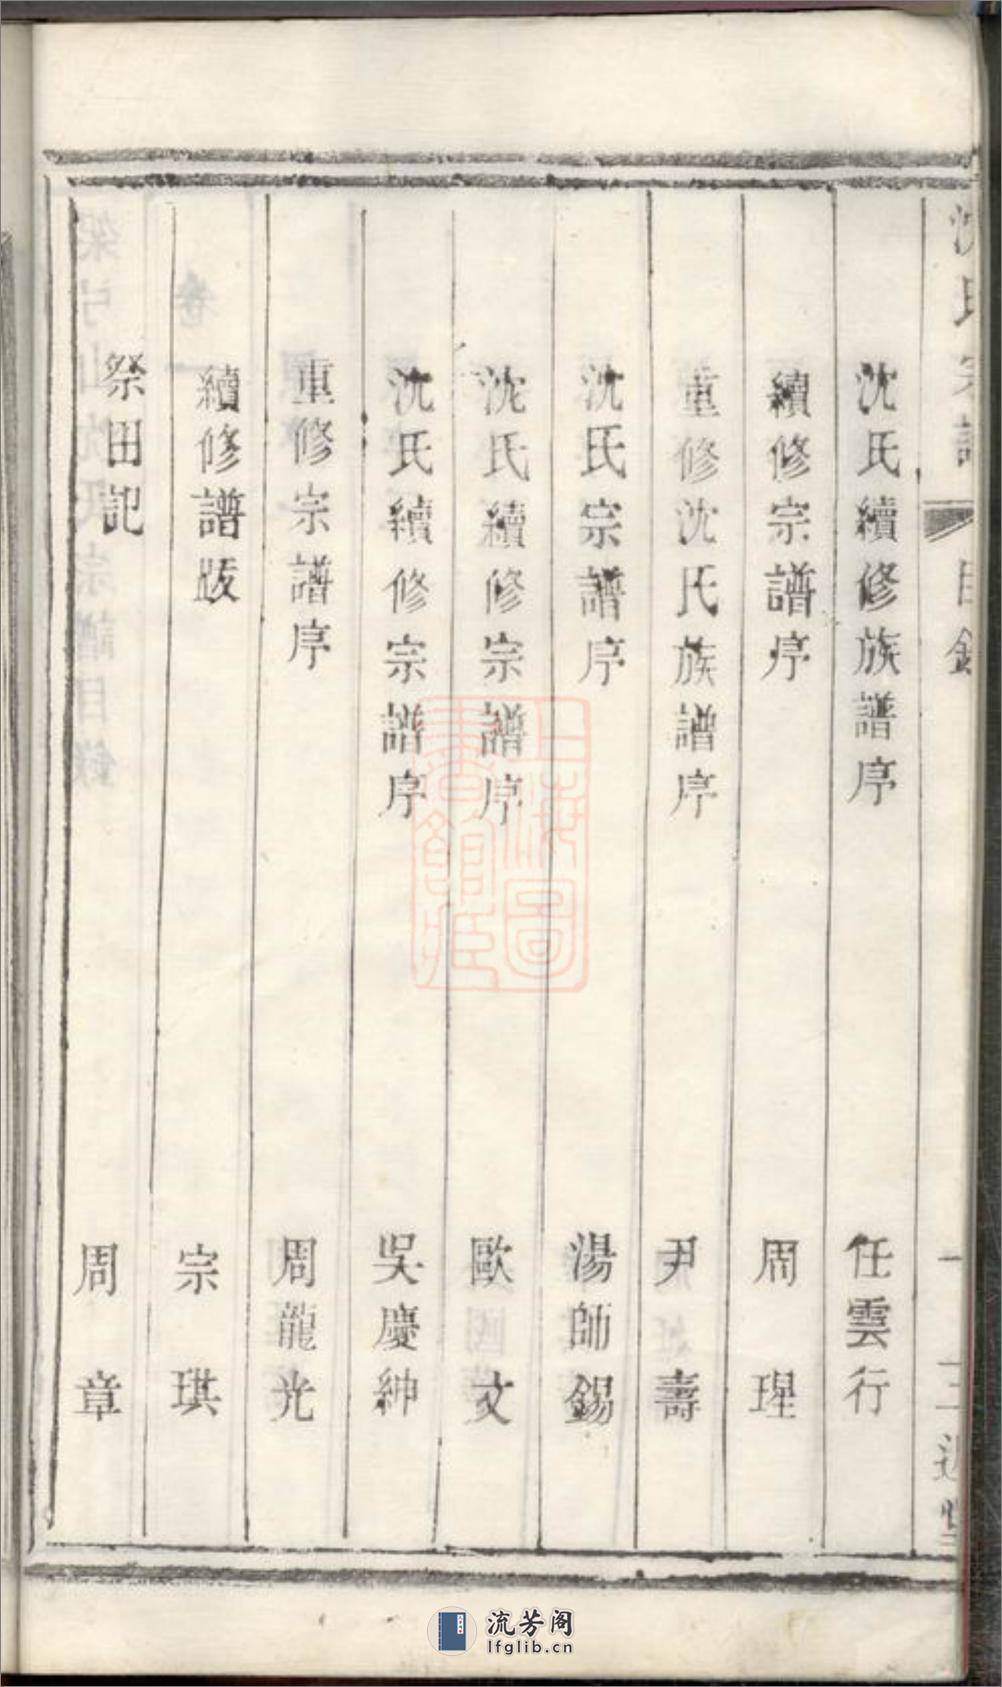 沈氏宗譜 目錄 一
沈氏續修族譜序 任雲行
續修宗譜序 周理
重修沈氏族譜序 尹壽
沈氏宗譜序 湯師錫
沈氏續修宗譜序 歐文
沈氏續修宗譜序 吳慶紳
重修宗譜序 周龍光
續修譜跋 宗琪
祭田記 周章
上海圖
書館藏
流芳阁
lfglib.cn